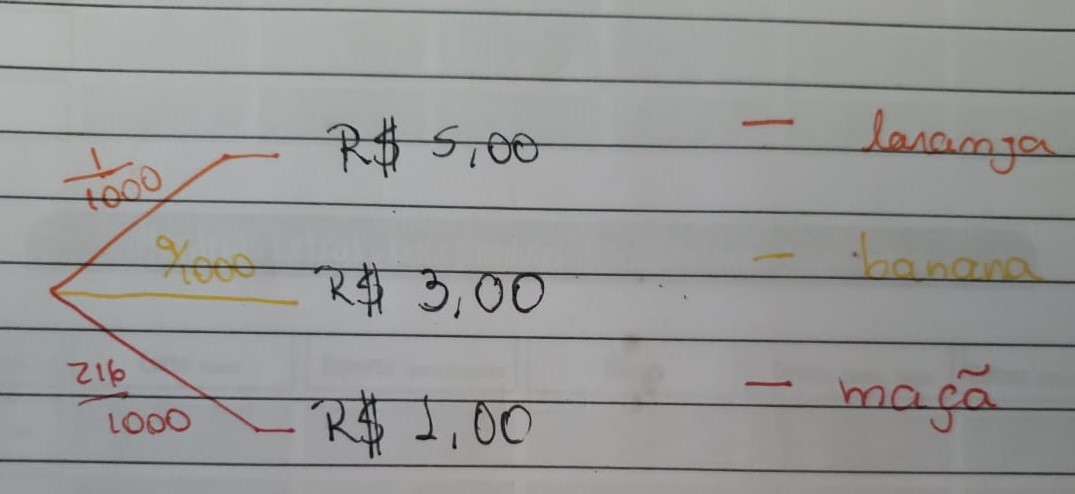 1/1000 R$ 5,00 — laranja
9/1000 R$ 3,00 — banana
216/1000 R$ 1,00 — maçã